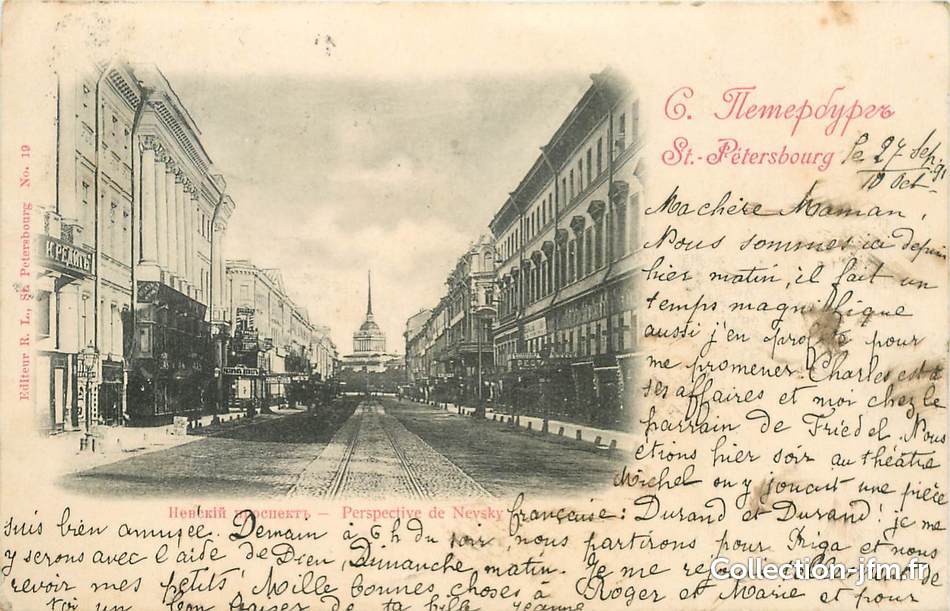 С. Петербургъ
St.-Pétersbourg le 27 Sep.
10 Oct. 
Ma chère Maman,
Nous sommes ici depuis
hier matin, il fait un
temps magnifique
aussi j'en profite pour
me promener. Charles est à
ses affaires et moi chez le
parrain de Friedel. Nous
étions hier soir au théâtre
Michel on y jouait une pièce
française: Durand et Durand! je me
suis bien amusée. Demain à 6h du soir, nous partirons pour Riga et nous
y serons avec l'aide de Dieu, Dimanche matin. Je me de
revoir mes petits. Mille bonnes choses à Roger et Marie et pour
toi un bon baiser de ta fille Jeanne
Невскій проспектъ – Perspective de Nevsky
Editeur R. L., St. Petersbourg No. 19
КРЕДИТЪ
Collection-jfm.fr